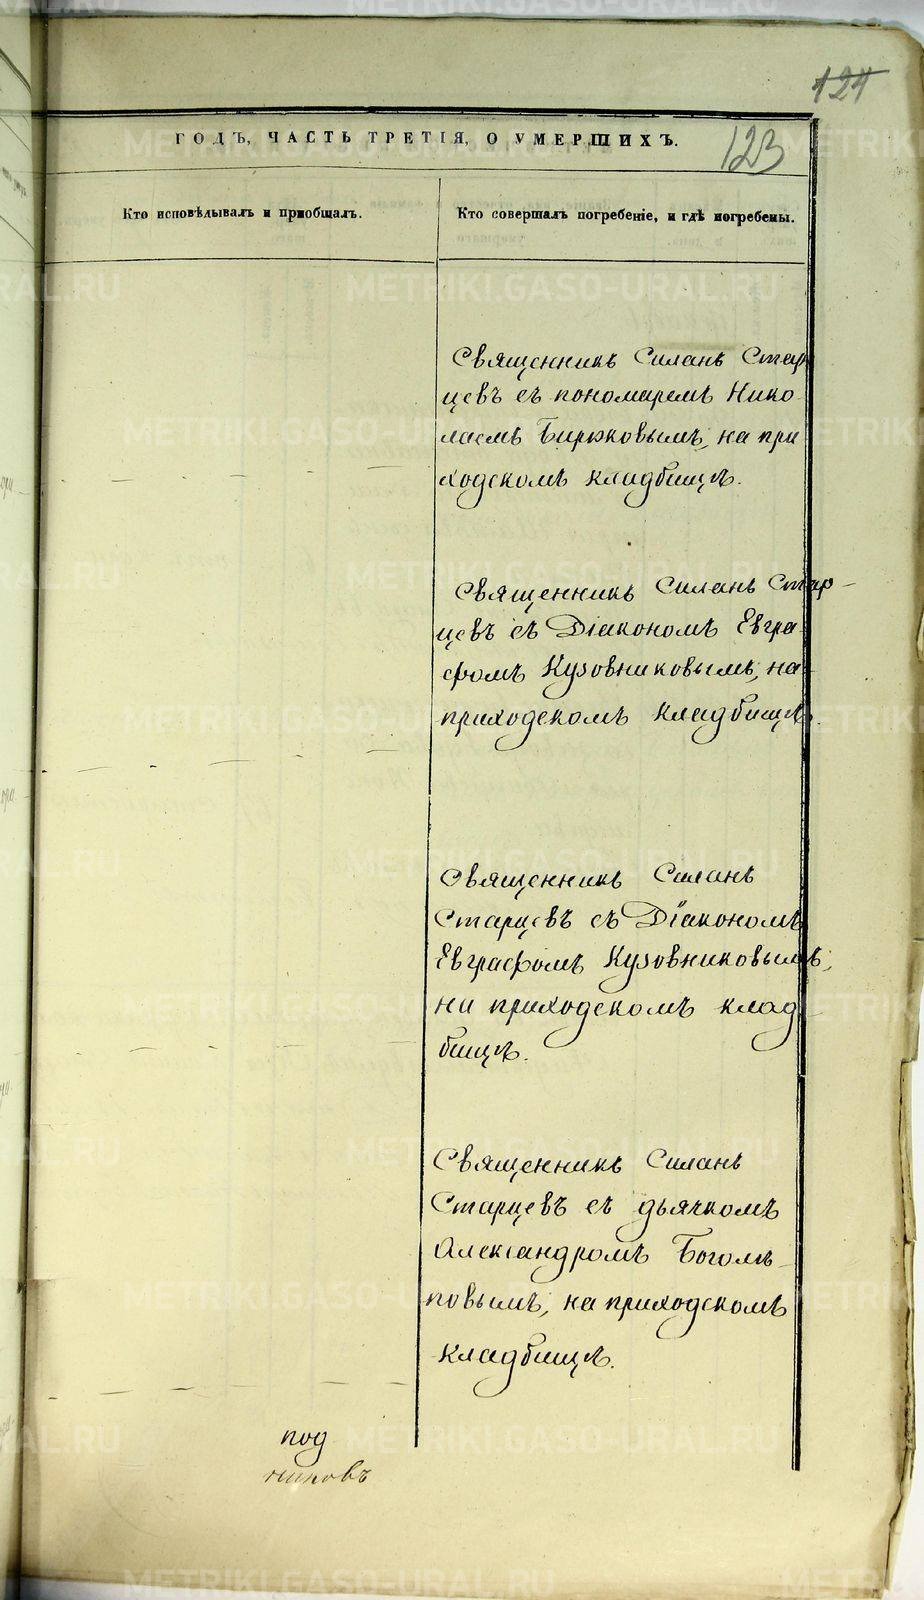 121
ГОДЪ, ЧАСТЬ ТРЕТІЯ, О УМЕРШИХЪ.
123
Кто исповѣдывалъ и пріобщалъ.
Кто совершалъ погребеніе, и гдѣ погребены.
Священникъ Силанъ Стар
цевъ съ пономаремъ Нико
лаемъ Бирюковымъ, на при
ходскомъ кладбищѣ.
Священникъ Силанъ Стар-
цевъ съ Діакономъ Евгра-
фомъ Кузовниковымъ, на
приходскомъ кладбищѣ.
Священникъ Силанъ
Старцевъ съ Діакономъ
Евграфомъ Кузовниковымъ,
на приходскомъ клад
бищѣ.
Священникъ Силанъ
Старцевъ съ дьячкомъ
Александромъ Боголѣ-
повымъ, на приходскомъ
кладбищѣ.
под
METRIKI.GASO-URAL.RU